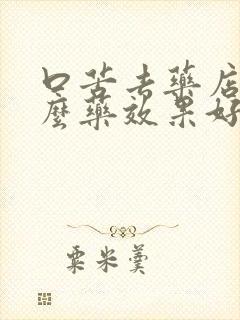 口苦去藥店
麼藥效果好
粟米羹